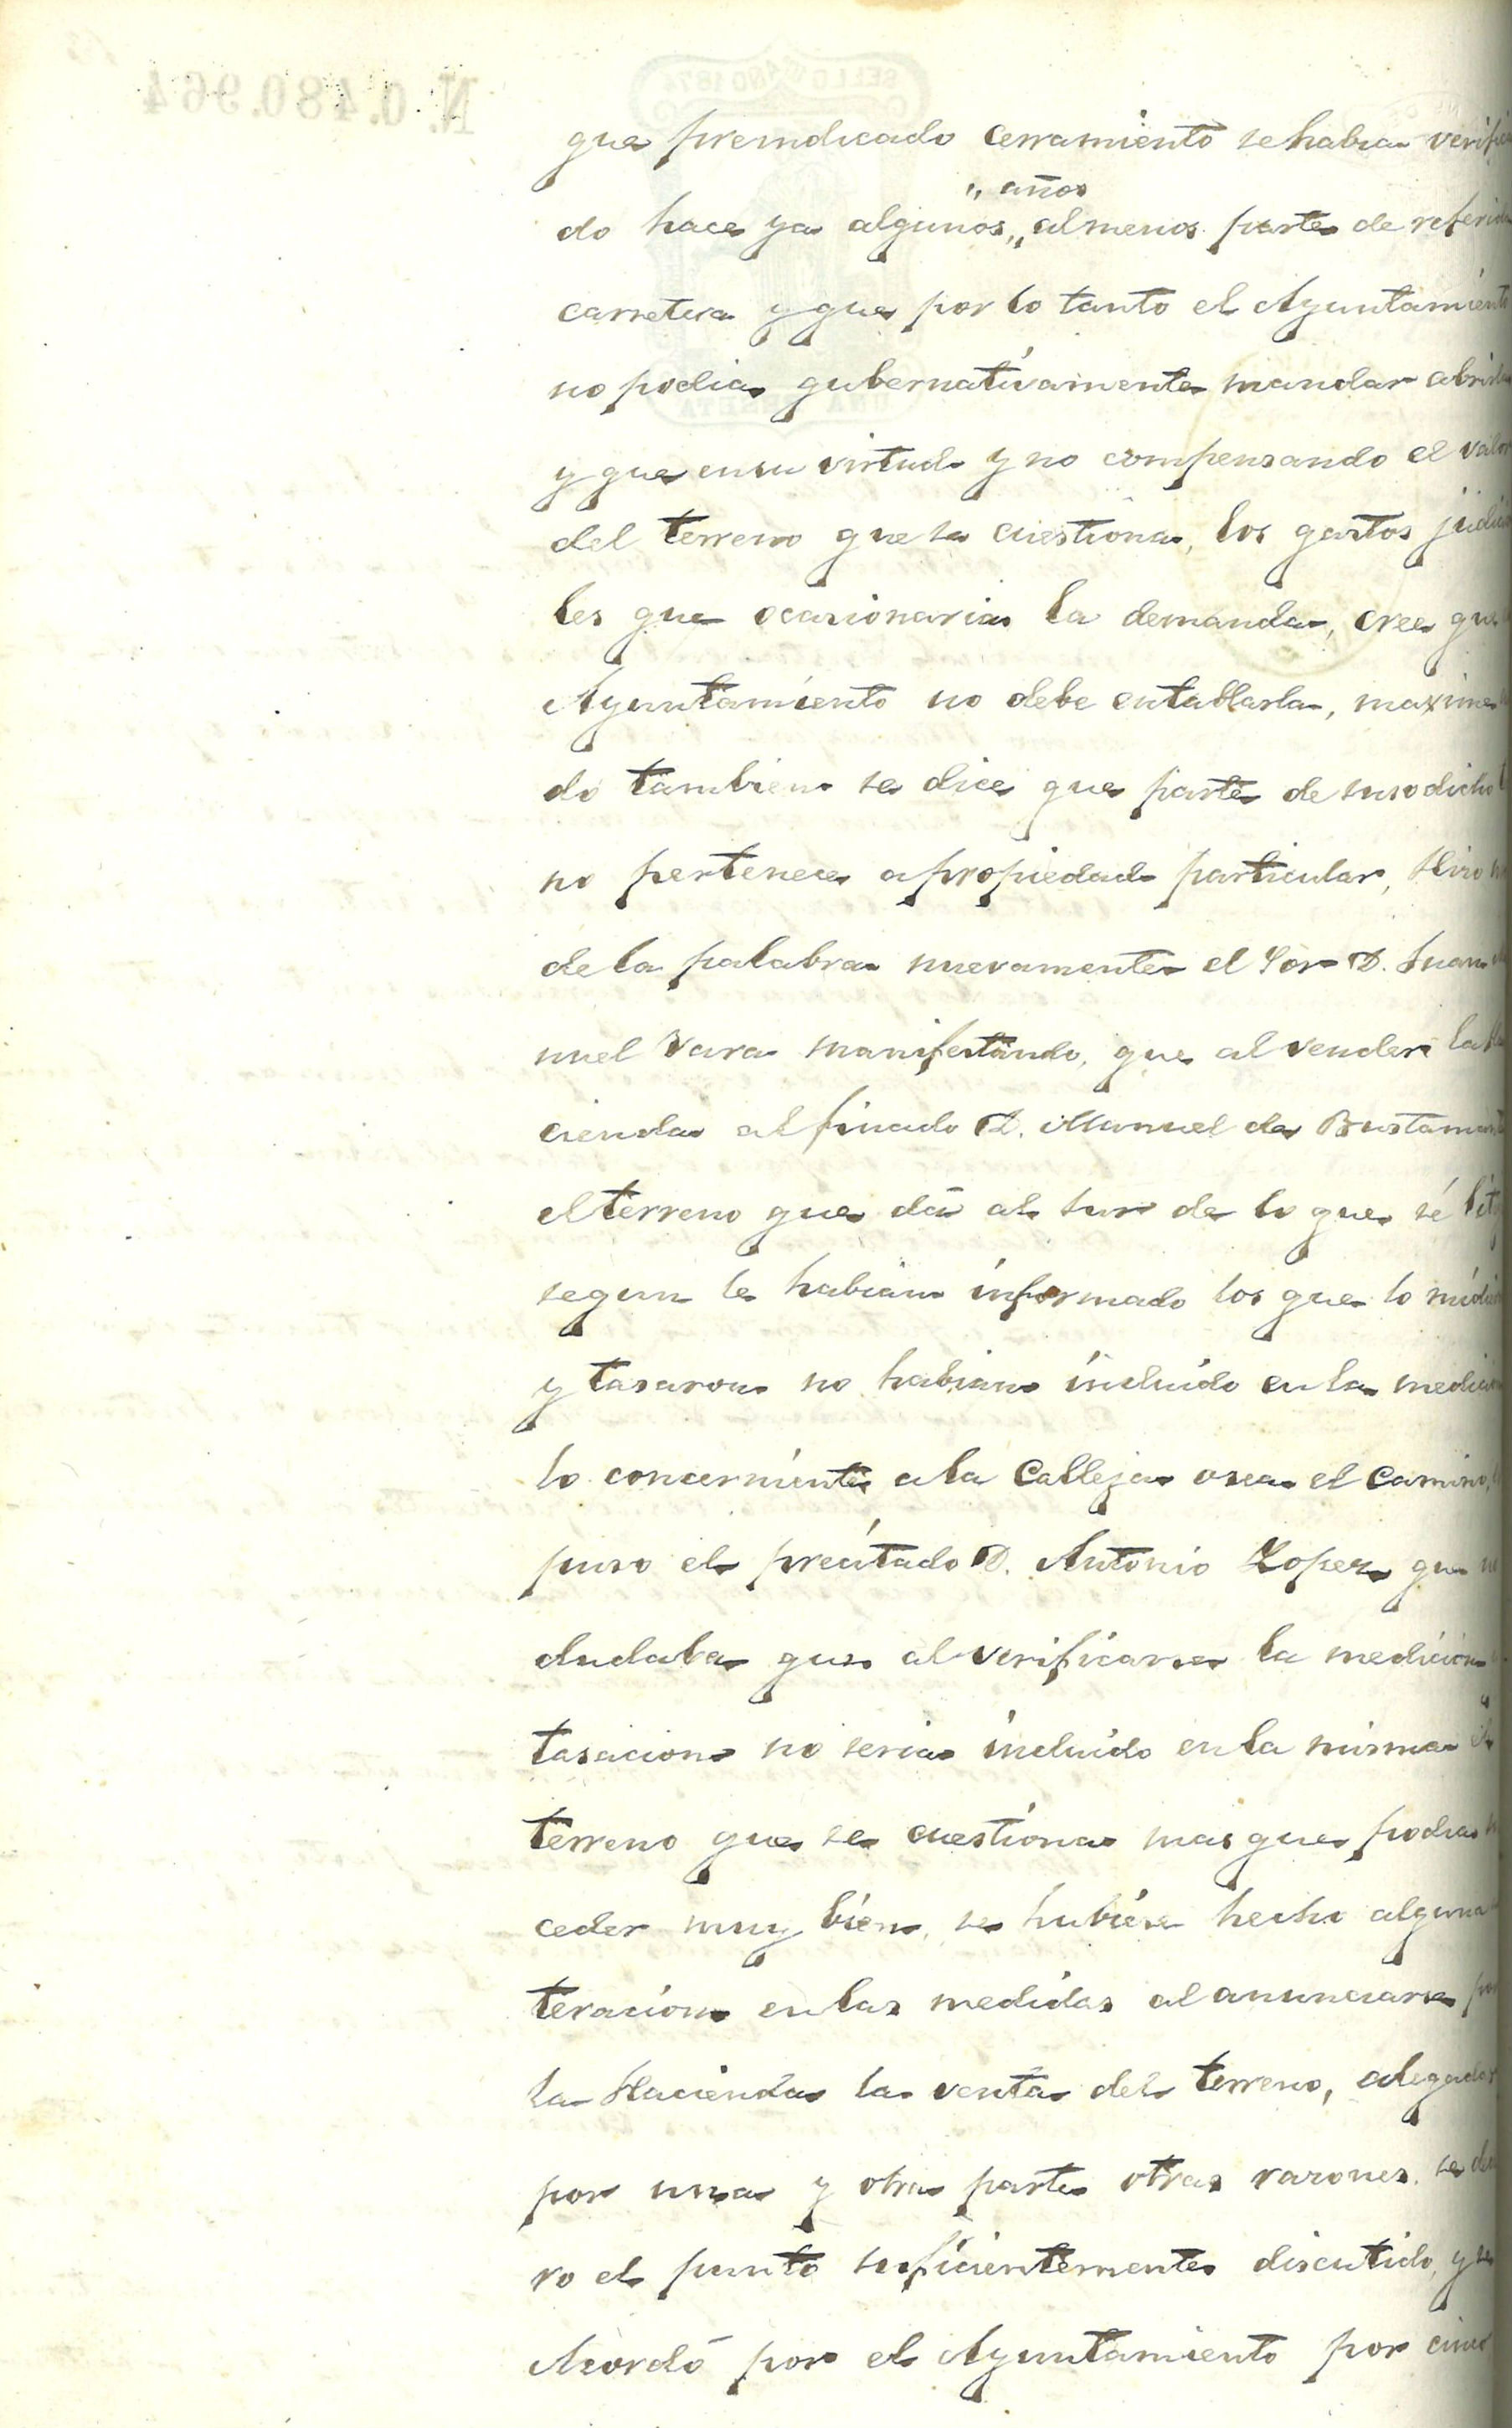 N. 0.480.964
SELLO AÑO 1874
que preindicado cerramiento se habia verifi
" años
do hace ya algunos,, al menos parte de referid
carretera y que por lo tanto el Ayuntamient
no podia gubernativamente mandar abrirla
y que en su virtud y no compensando el valor
del terreno que se cuestiona, los gastos judici
les que ocasionaria la demanda, cree que
Ayuntamiento no debe entablarla, maxime
do tambien se dice que parte de susodicho
no pertenece a propiedad particular, Hizo
de la palabra nuevamente el Sor D. Juan
nuel Vara manifestando, que al vender la
cienda al finado D. Manuel de Bustamant
el terreno que dá al sur de lo que sé lit
segun le habian informado los que lo midi
y tasaron no habian incluido en la medicion
lo concerniente a la Calleja osea el camino,
puso el precitado D. Antonio Lopez que
dudaba que al verificarse la medicion
tasacion no seria incluido en la misma el
terreno que se cuestiona mas que podia
ceder muy bien se hubiese hecho alguna
teracion en las medidas al anunciarse por
la Hacienda la venta del terreno, alegadas
por una y otra parte otras razones se
ro el punto suficientemente discutido, y se
Acordó por el Ayuntamiento por cinco